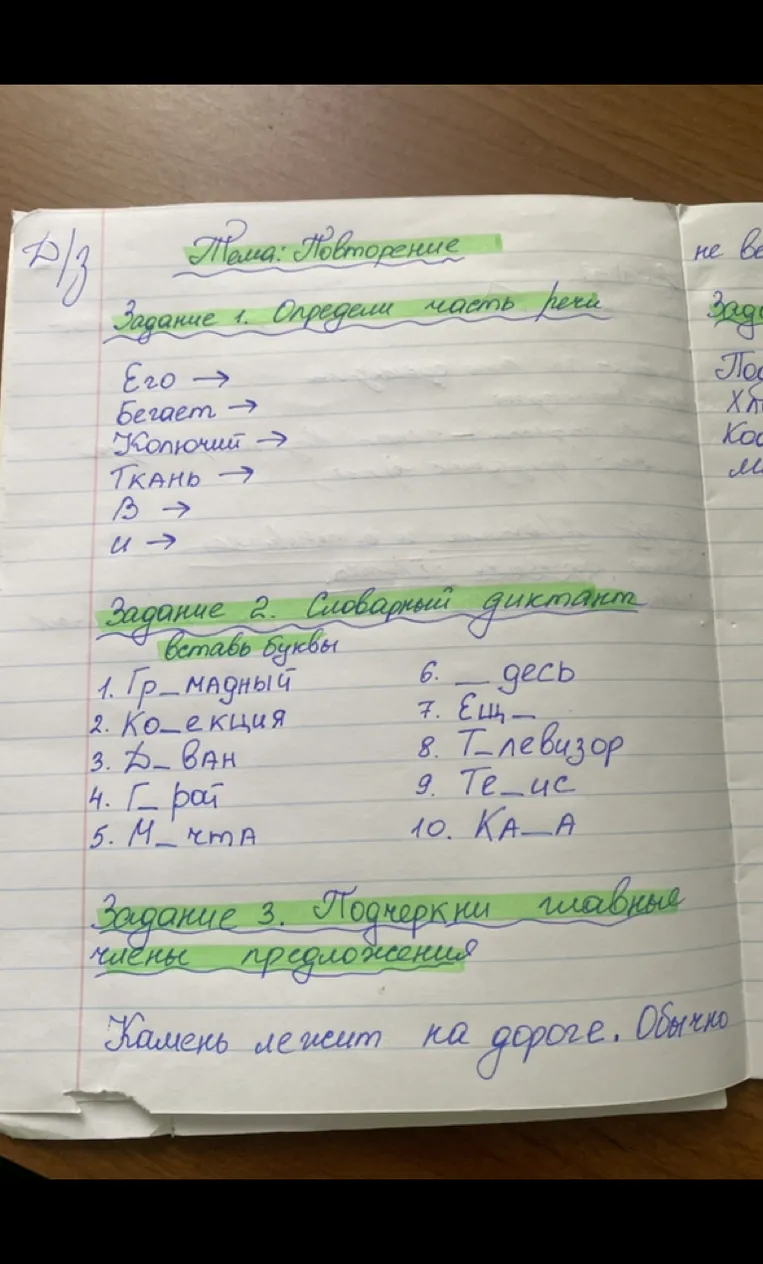 Д/з
Тема: Повторение
Задание 1. Определи часть речи
Его →
Бегает →
Колючий →
Ткань →
В →
и →
Задание 2. Словарный диктант
вставь буквы
1. Гр_мадный
2. Ко_екция
3. Д_ван
4. Г_рой
5. М_чта
6. _десь
7. Ещ_
8. Т_левизор
9. Те_ис
10. Ка_а
Задание 3. Подчеркни главные
члены предложения
Камень лежит на дороге. Обычно
не